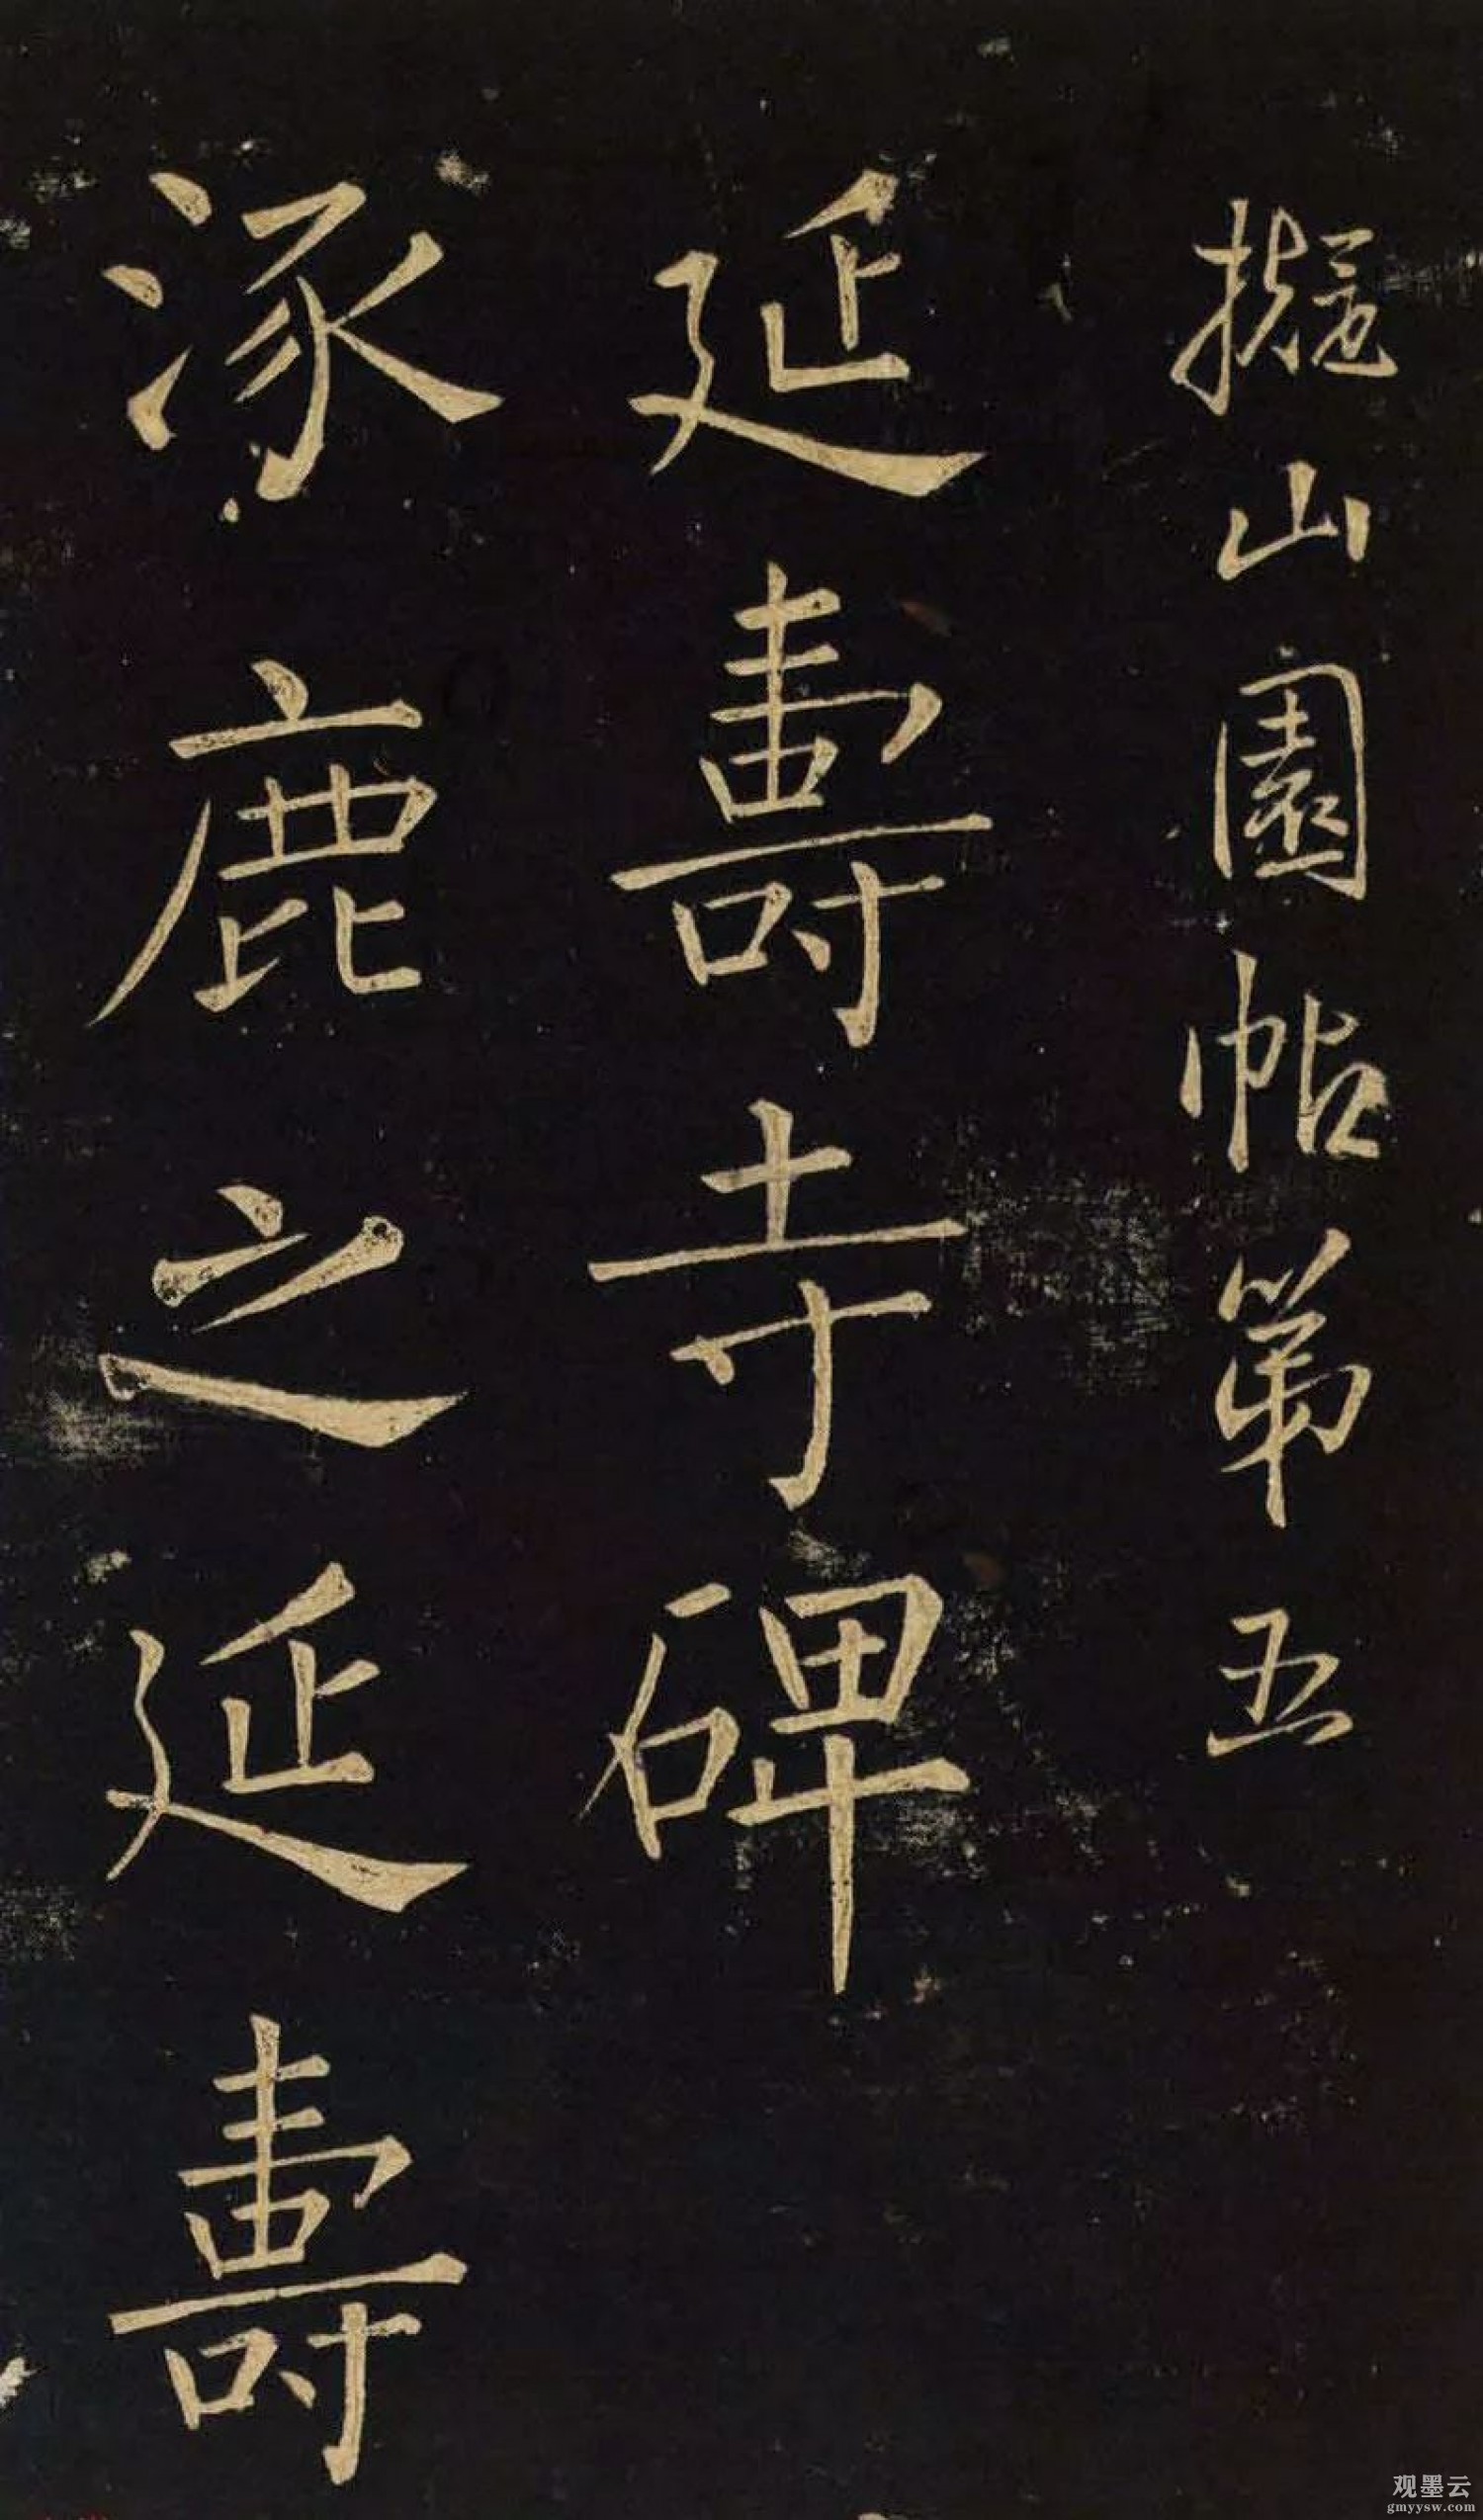 擬山園帖第五
延壽寺碑
涿鹿之延壽
观墨云
gmyysw.com